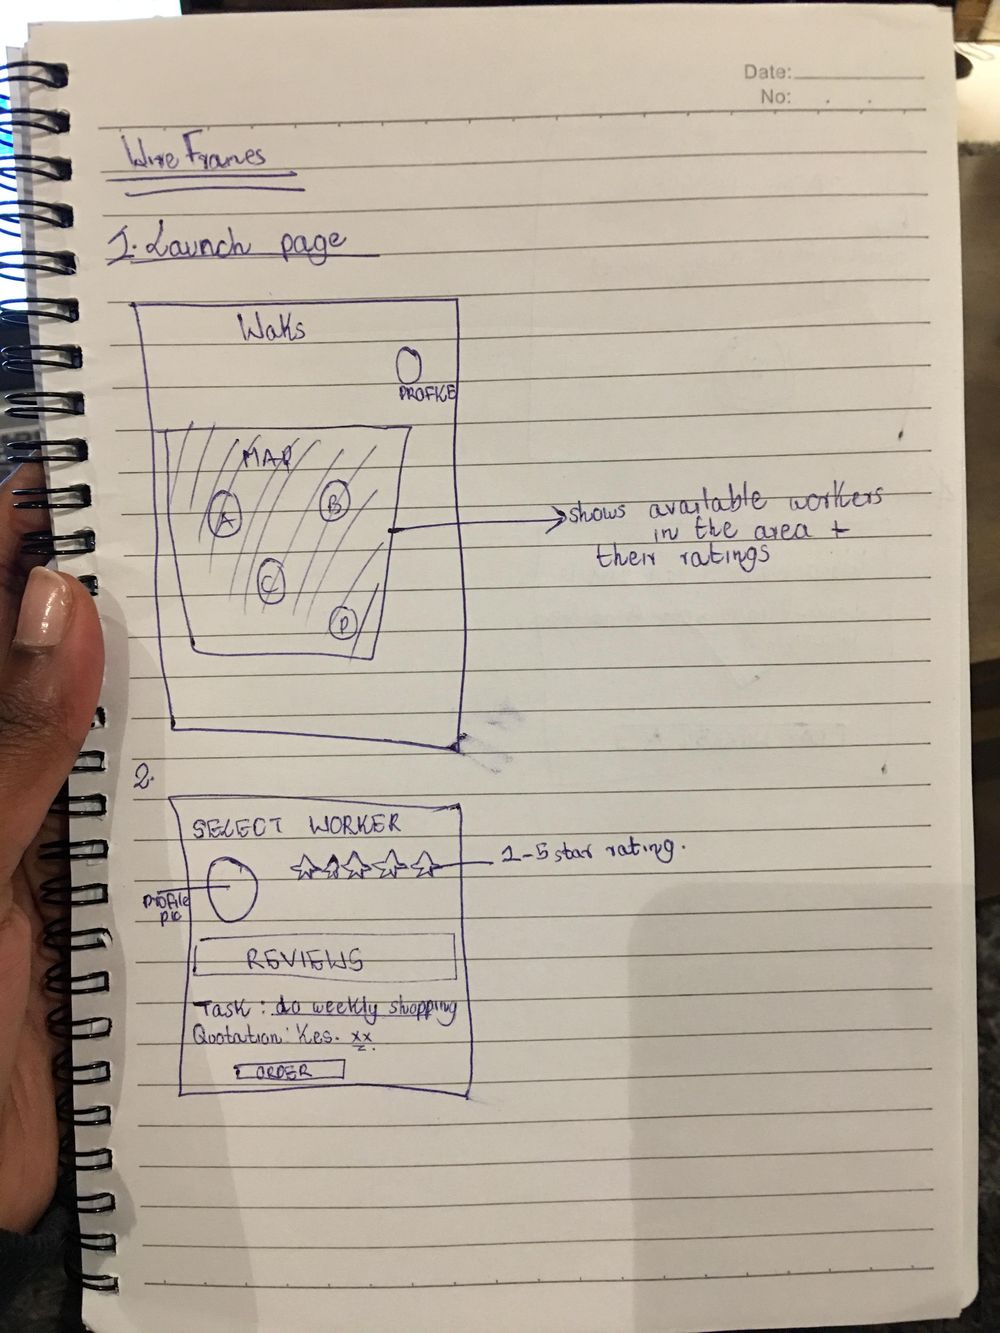 Date:
No:
Wire Frames
1. Launch page
Waks
PROFILE
MAP
A
B
C
D
shows available workers
in the area +
their ratings
2.
SELECT WORKER
1-5 star rating.
Profile
pic
REVIEWS
Task : do weekly shopping
Quotation: Kes. xx
ORDER